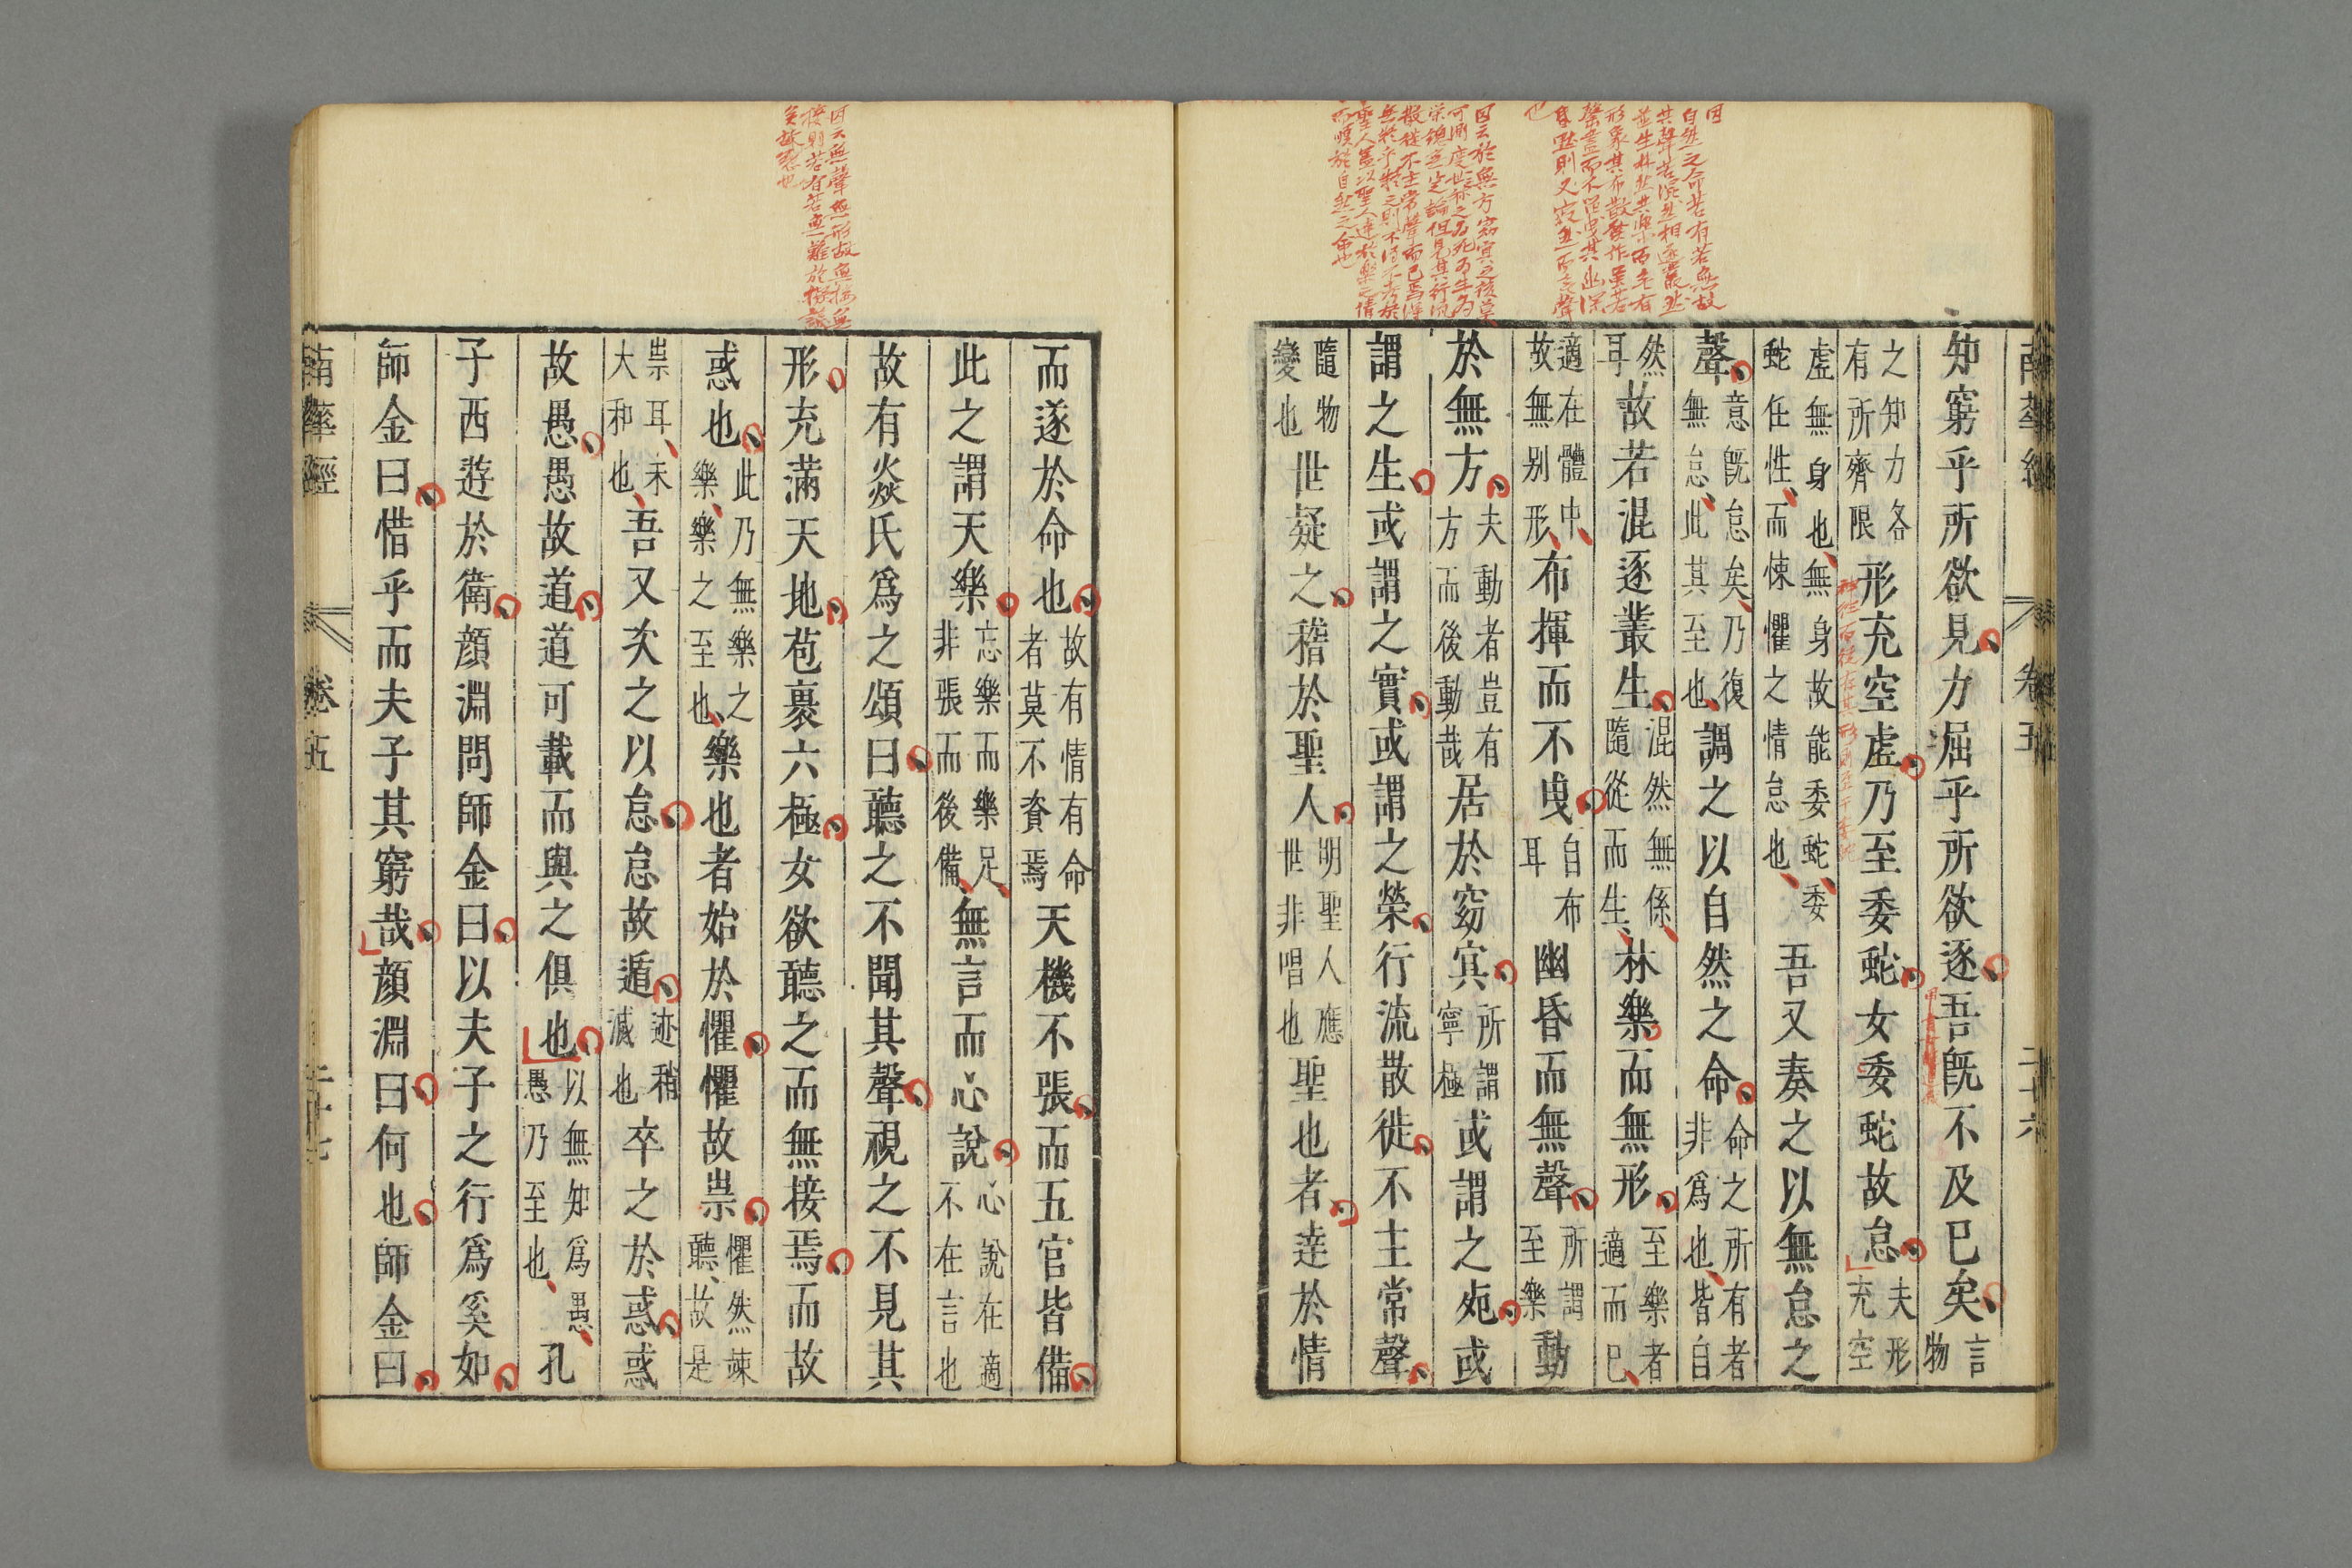 南華經 卷五 二十六
知窮乎所欲見力屈乎所欲逐吾旣不及已矣言物
之知力各有所齊限形充空虛乃至委蛇女委蛇故怠夫形充空
虛無身也無身故能委蛇委蛇任性而悚懼之情怠也吾又奏之以無怠之
聲意旣怠矣乃復無怠此其至也調之以自然之命命之所有者非爲也皆自
然耳故若混逐叢生混然無係隨從而生林樂而無形至樂者適而已
適在體中故無别形布揮而不曳自布耳幽昏而無聲所謂至樂動
於無方夫動者豈有方而後動哉居於窈冥所謂寧極或謂之死或
謂之生或謂之實或謂之榮行流散徙不主常聲
隨物變也世疑之稽於聖人明聖人應世非唱也聖也者達於情
而遂於命也故有情有命者莫不資焉天機不張而五官皆備
此之謂天樂忘樂而樂足非張而後備無言而心說心說在適不在言也
故有焱氏爲之頌曰聽之不聞其聲視之不見其
形充滿天地苞裹六極女欲聽之而無接焉而故
惑也此乃無樂之樂樂之至也樂也者始於懼懼故祟懼然竦聽故是
祟耳未大和也吾又次之以怠怠故遁迹稍滅也卒之於惑惑
故愚愚故道道可載而與之俱也以無知爲愚愚乃至也孔
子西遊於衛顔淵問師金曰以夫子之行爲奚如
師金曰惜乎而夫子其窮哉顔淵曰何也師金曰
南華經 卷五 二十七